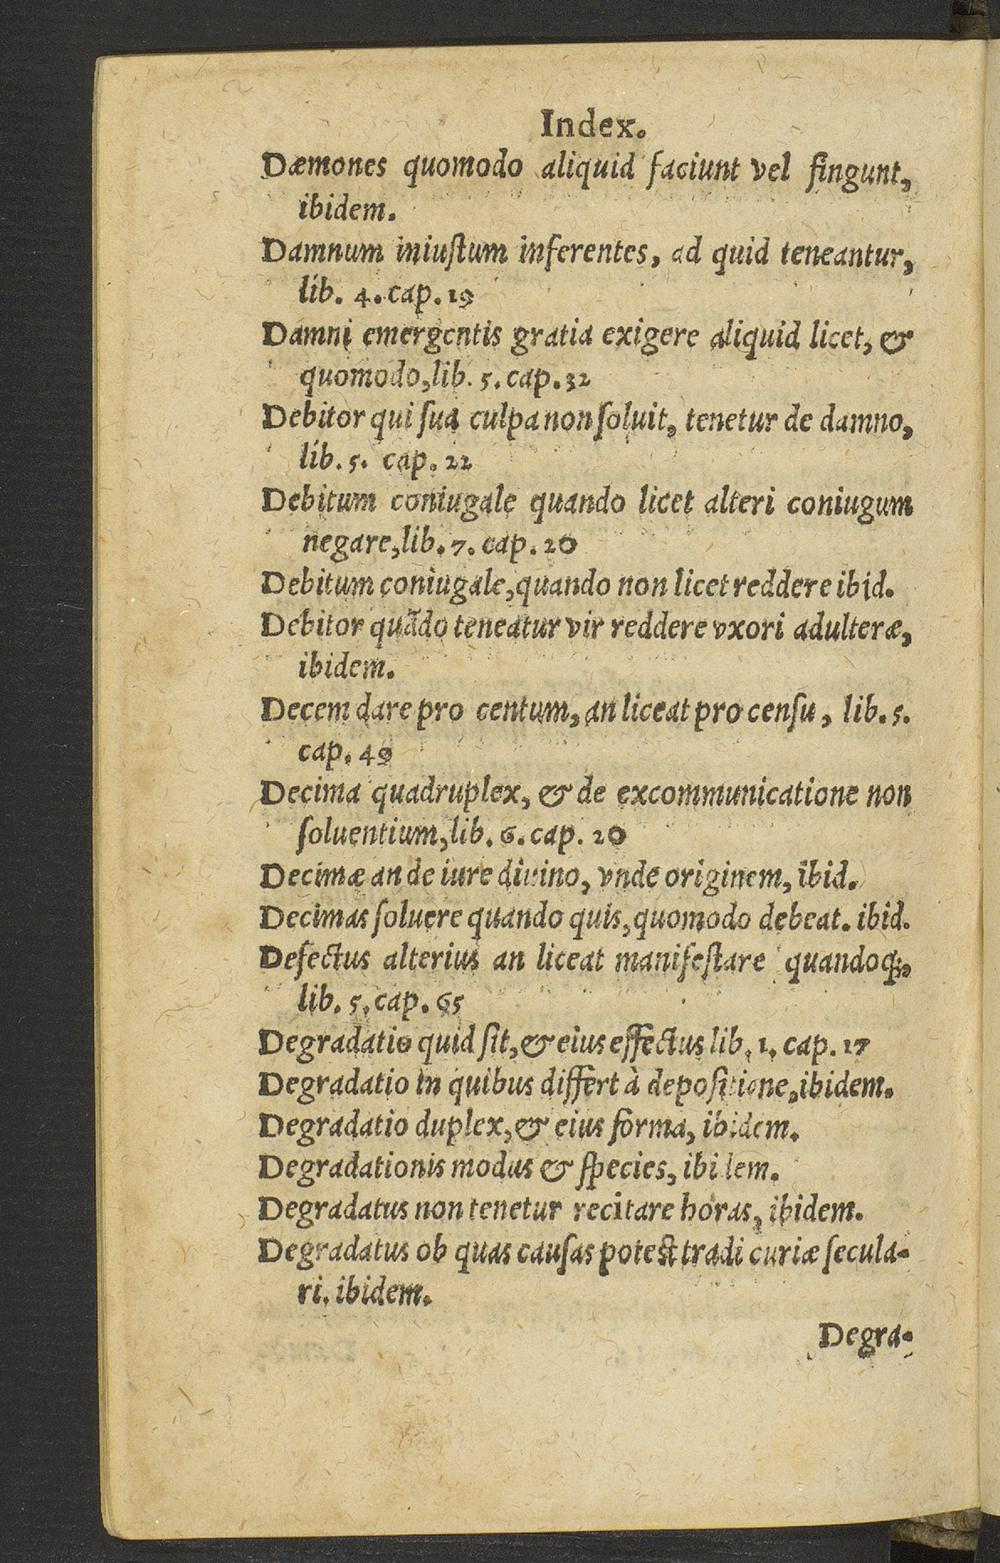 Index.
Dæmones quomodo aliquid faciunt vel fingunt,
ibidem.
Damnum iniuſtum inferentes, ad quid teneantur,
lib. 4. cap. 19
Damni emergentis gratia exigere aliquid licet, &
quomodo, lib. 5. cap. 32
Debitor qui ſua culpa non ſoluit, tenetur de damno,
lib. 5. cap. 22
Debitum coniugale quando licet alteri coniugum
negare, lib. 7. cap. 20
Debitum coniugale, quando non licet reddere ibid.
Debitor quãdo teneatur vir reddere vxori adulteræ,
ibidem.
Decem dare pro centum, an liceat pro cenſu, lib. 5.
cap. 49
Decima quadruplex, & de excommunicatione non
ſoluentium, lib. 6. cap. 20
Decimæ an de iure diuino, vnde originem, ibid.
Decimas ſoluere quando quis, quomodo debeat. ibid.
Defectus alterius an liceat manifeſtare quandoq;,
lib. 5. cap. 65
Degradatio quid ſit, & eius effectus lib. 1. cap. 17
Degradatio in quibus differt à depoſitione, ibidem.
Degradatio duplex, & eius forma, ibidem.
Degradationis modus & ſpecies, ibidem.
Degradatus non tenetur recitare horas, ibidem.
Degradatus ob quas cauſas poteſt tradi curiæ ſecula-
ri. ibidem.
Degra-